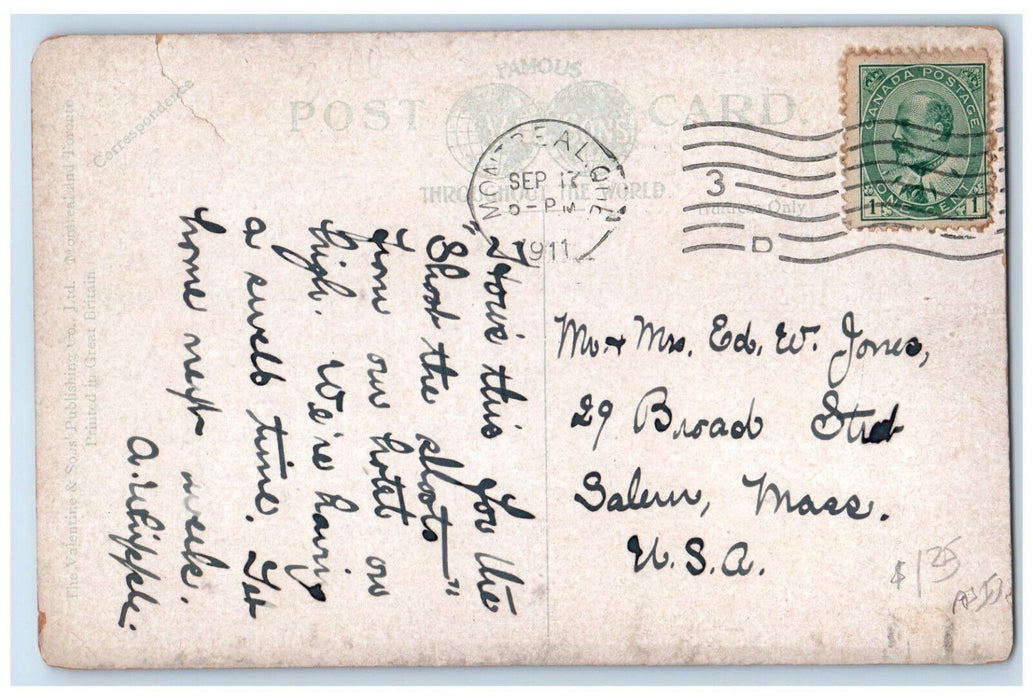 FAMOUS
POST CARD.
THROUGHOUT THE WORLD.
Address Only
Correspondence
The Valentine & Sons' Publishing Co., Ltd. Montreal and Toronto
Printed in Great Britain
MONTREAL, QUE.
SEP 17
PM
1911
3
D
CANADA POSTAGE
ONE CENT
1 1
"How's this for the
"Shoot the shoots"
from our hotel on
high. We're having
a swell time. Get
home next week.
A. Whipple.
Mr. + Mrs. Ed. W. Jones,
29 Broad Street
Salem, Mass.
U.S.A.
$1 25